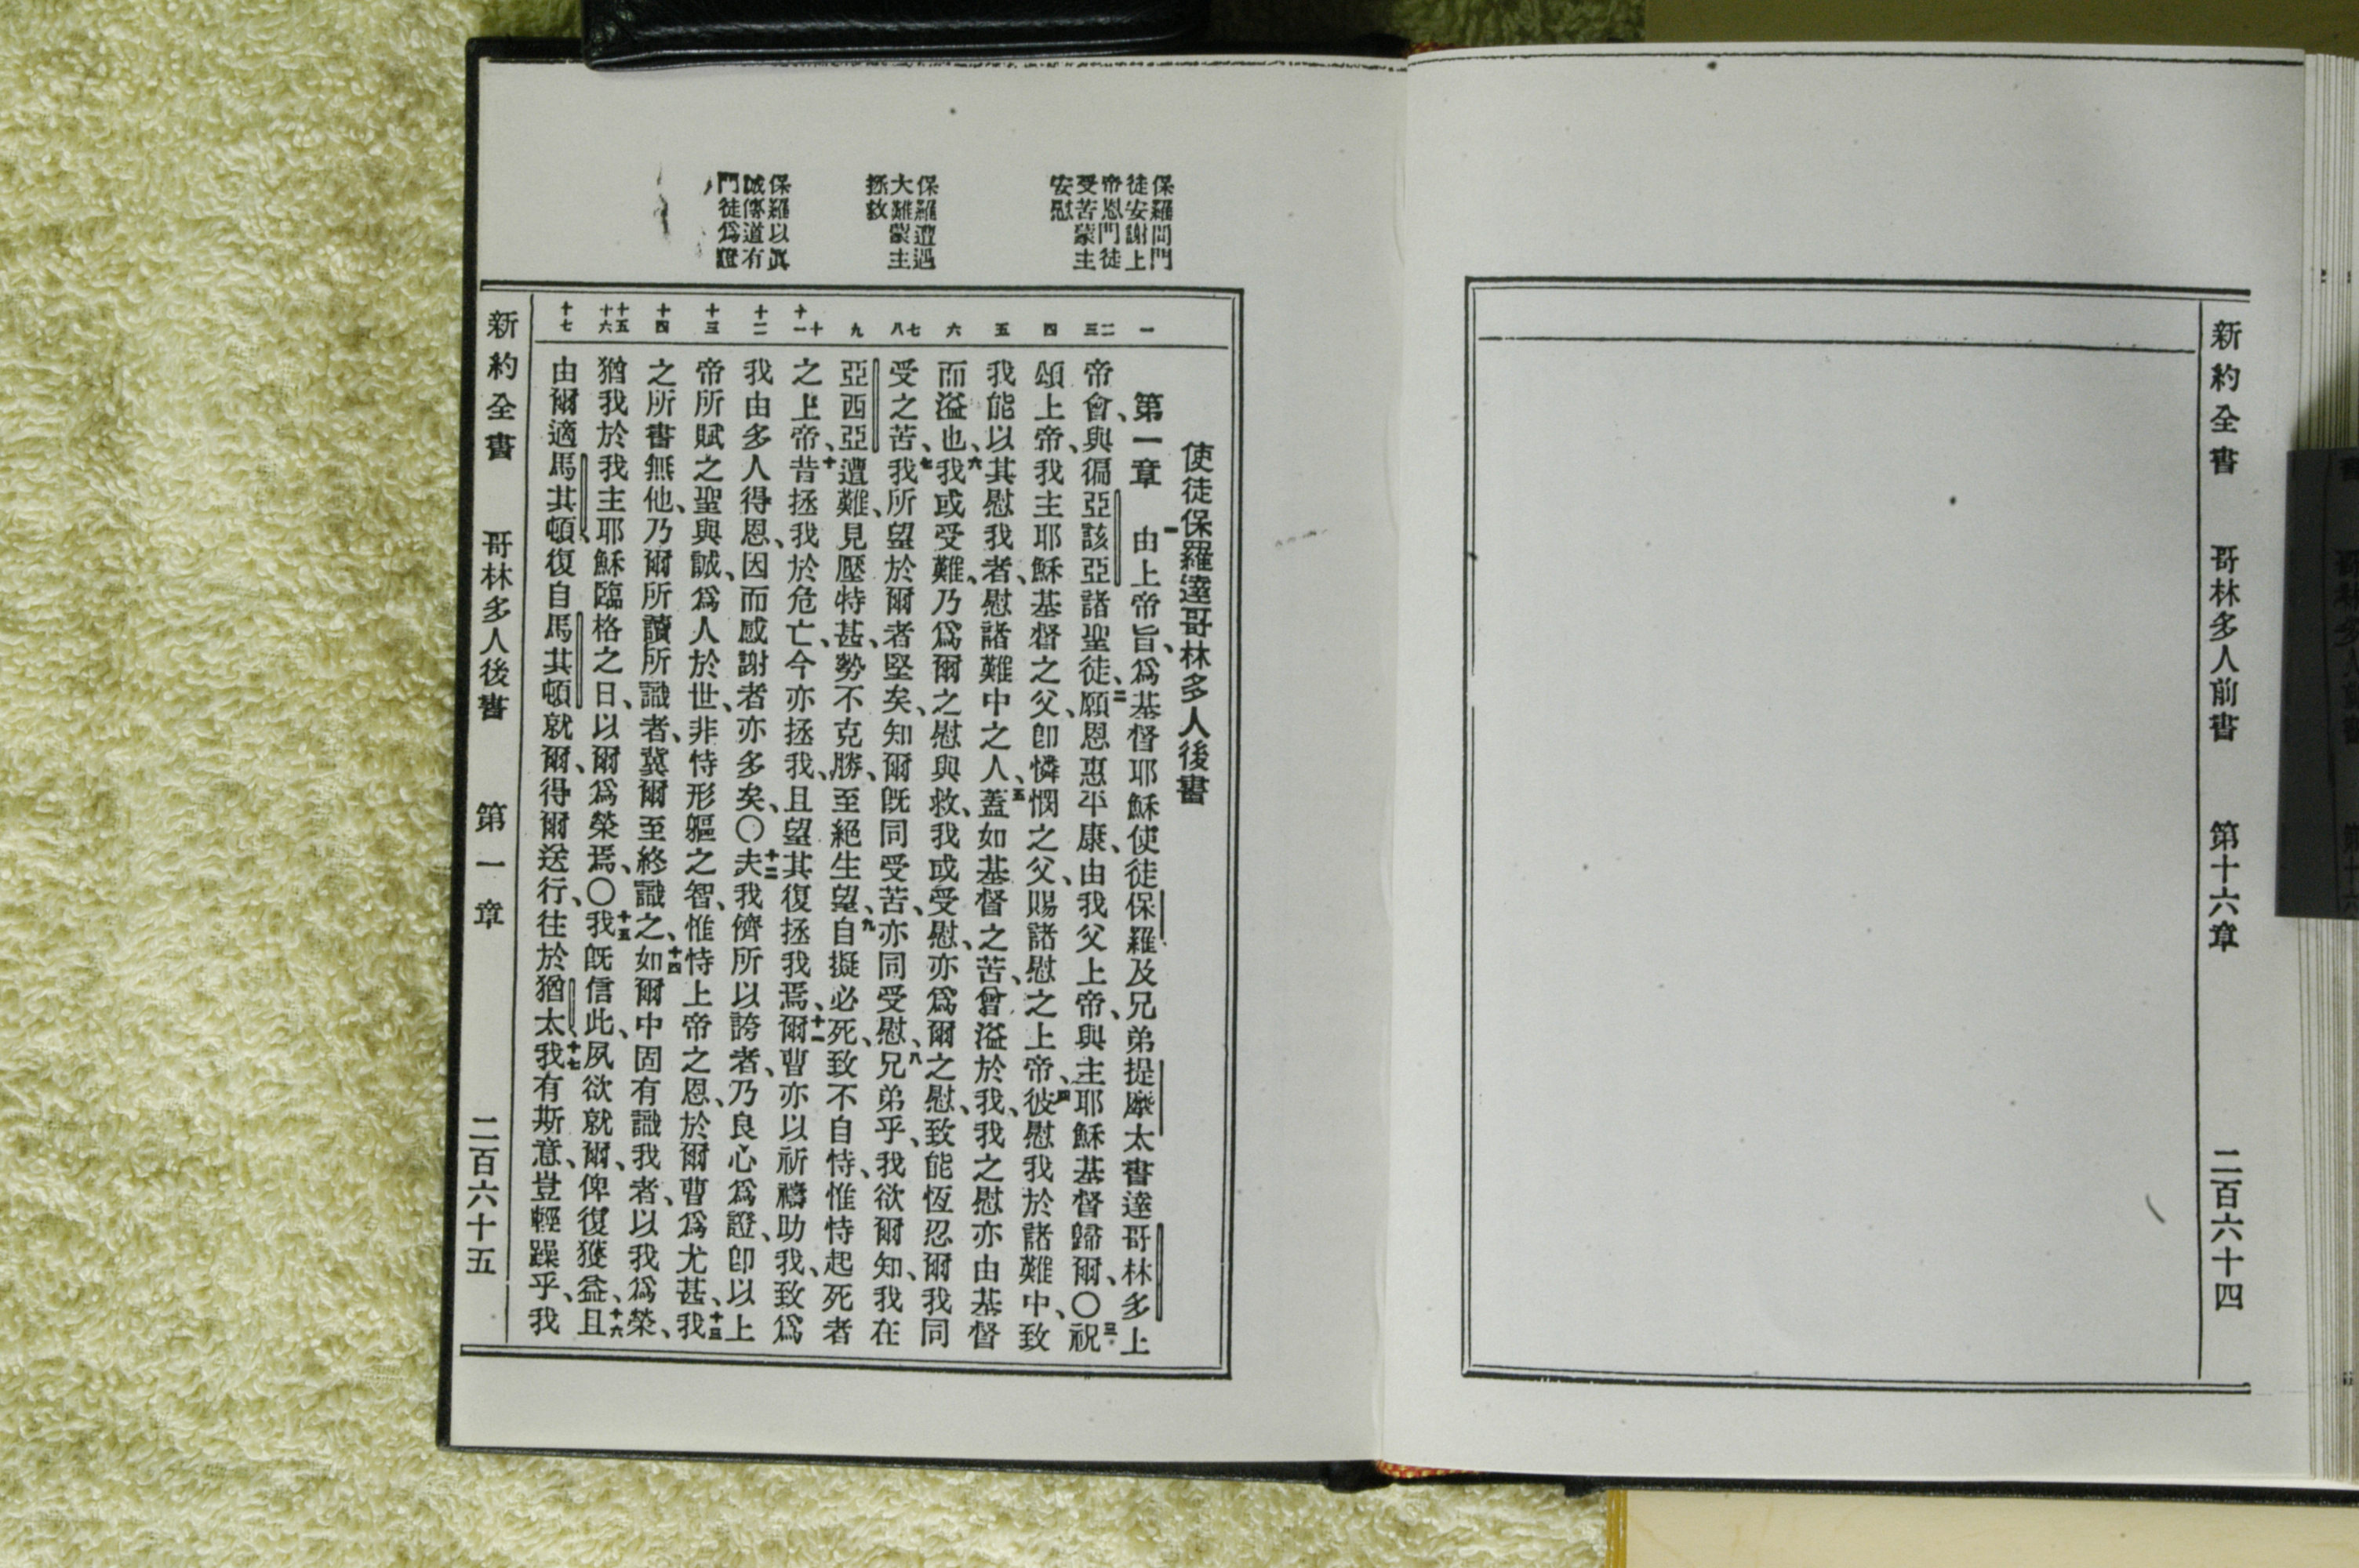 新約全書 哥林多人前書 第十六章 二百六十四
保羅問門
徒安謝上
帝恩門徒
受苦蒙主
安慰
保羅遭遇
大難蒙主
拯救
保羅以眞
誠傳道有
門徒爲證
一
二
三
四
五
六
七
八
九
十
十一
十二
十三
十四
十五
十六
十七
使徒保羅達哥林多人後書
第一章 一由上帝旨、爲基督耶穌使徒保羅及兄弟提摩太書達哥林多上
帝會、與徧亞該亞諸聖徒、二願恩惠平康、由我父上帝、與主耶穌基督歸爾、〇三祝
頌上帝、我主耶穌基督之父、卽憐憫之父、賜諸慰之上帝、四彼慰我於諸難中、致
我能以其慰我者、慰諸難中之人、五蓋如基督之苦、曾溢於我、我之慰亦由基督
而溢也、六我或受難、乃爲爾之慰與救、我或受慰、亦爲爾之慰、致能恆忍爾我同
受之苦、七我所望於爾者堅矣、知爾旣同受苦、亦同受慰、八兄弟乎、我欲爾知、我在
亞西亞遭難、見壓特甚、勢不克勝、至絕生望、九自擬必死、致不自恃、惟恃起死者
之上帝、十昔拯我於危亡、今亦拯我、且望其復拯我焉、十一爾曹亦以祈禱助我、致爲
我由多人得恩、因而感謝者亦多矣、〇十二夫我儕所以誇者、乃良心爲證、卽以上
帝所賦之聖與誠、爲人於世、非恃形軀之智、惟恃上帝之恩、於爾曹爲尤甚、十三我
之所書無他、乃爾所讀所識者、冀爾至終識之、十四如爾中固有識我者、以我爲榮、
猶我於我主耶穌臨格之日、以爾爲榮焉、〇十五我旣信此、夙欲就爾、俾復獲益、十六且
由爾適馬其頓、復自馬其頓就爾、得爾送行、往於猶太、十七我有斯意、豈輕躁乎、我
新約全書 哥林多人後書 第一章 二百六十五